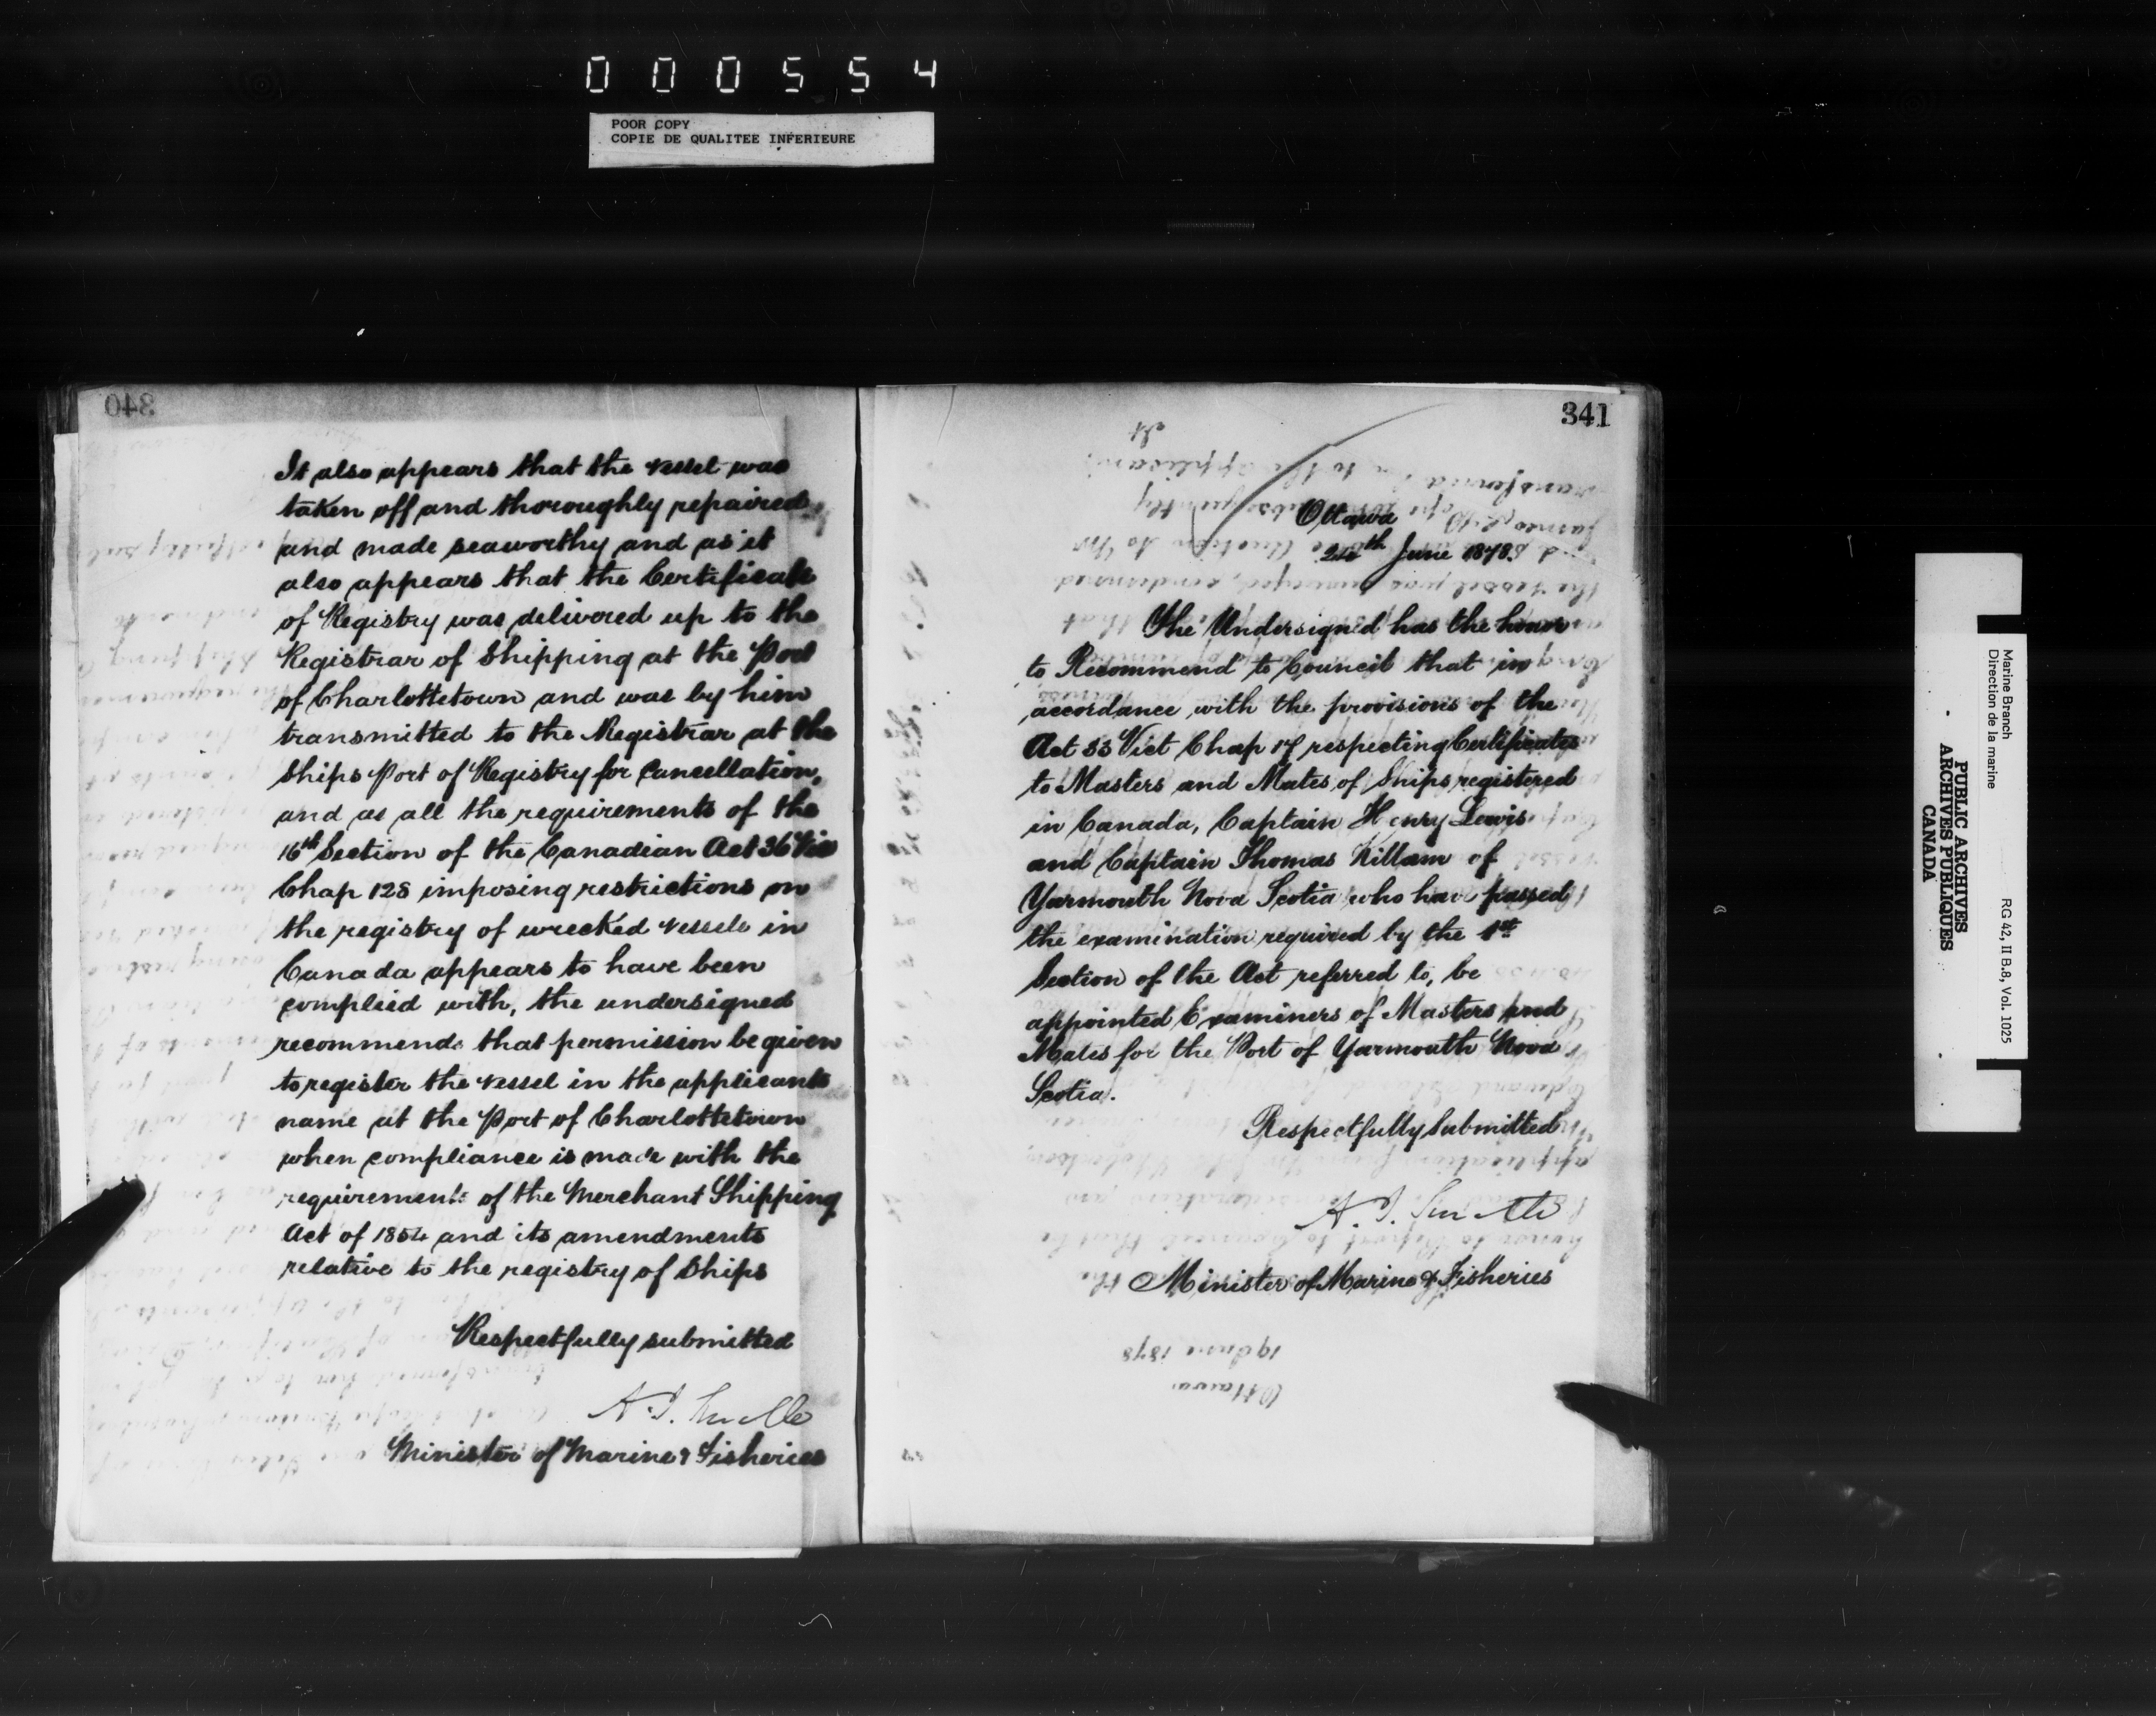 000554
POOR COPY
COPIE DE QUALITEE INFERIEURE
340
It also appears that the vessel was
taken off and thoroughly repaired
and made seaworthy and as it
also appears that the Certificate
of Registry was delivered up to the
Registrar of Shipping at the Port
of Charlottetown and was by him
transmitted to the Registrar at the
Ships Port of Registry for Cancellation,
and as all the requirements of the
16th Section of the Canadian Act 36 Vic
Chap 128 imposing restrictions on
the registry of wrecked vessels in
Canada appears to have been
complied with, the undersigned
recommends that permission be given
to register the vessel in the applicants
name at the Port of Charlottetown
when compliance is made with the
requirements of the Merchant Shipping
Act of 1854 and its amendments
relative to the registry of Ships
Respectfully submitted
A. J. Smith
Minister of Marine & Fisheries
341
Ottawa
24th June 1878
The Undersigned has the honor
to Recommend to Council that in
accordance with the provisions of the
Act 33 Vict Chap 17 respecting Certificates
to Masters and Mates of Ships registered
in Canada, Captain Henry Lewis
and Captain Thomas Killam of
Yarmouth Nova Scotia who have passed
the examination required by the 1st
Section of the Act referred to, be
appointed Examiners of Masters and
Mates for the Port of Yarmouth Nova
Scotia.
Respectfully Submitted
A. J. Smith
Minister of Marine & Fisheries
Ottawa
19 June 1878
Marine Branch
Direction de la marine
RG 42, II B.8, Vol. 1025
PUBLIC ARCHIVES
ARCHIVES PUBLIQUES
CANADA